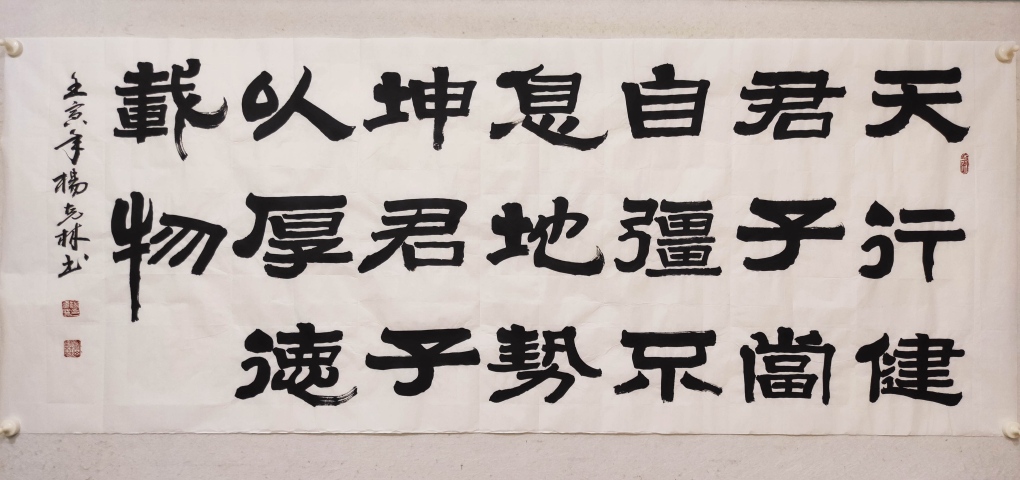 天行健
君子當
自彊不
息地勢
坤君子
以厚德
載物
壬寅年楊克林书